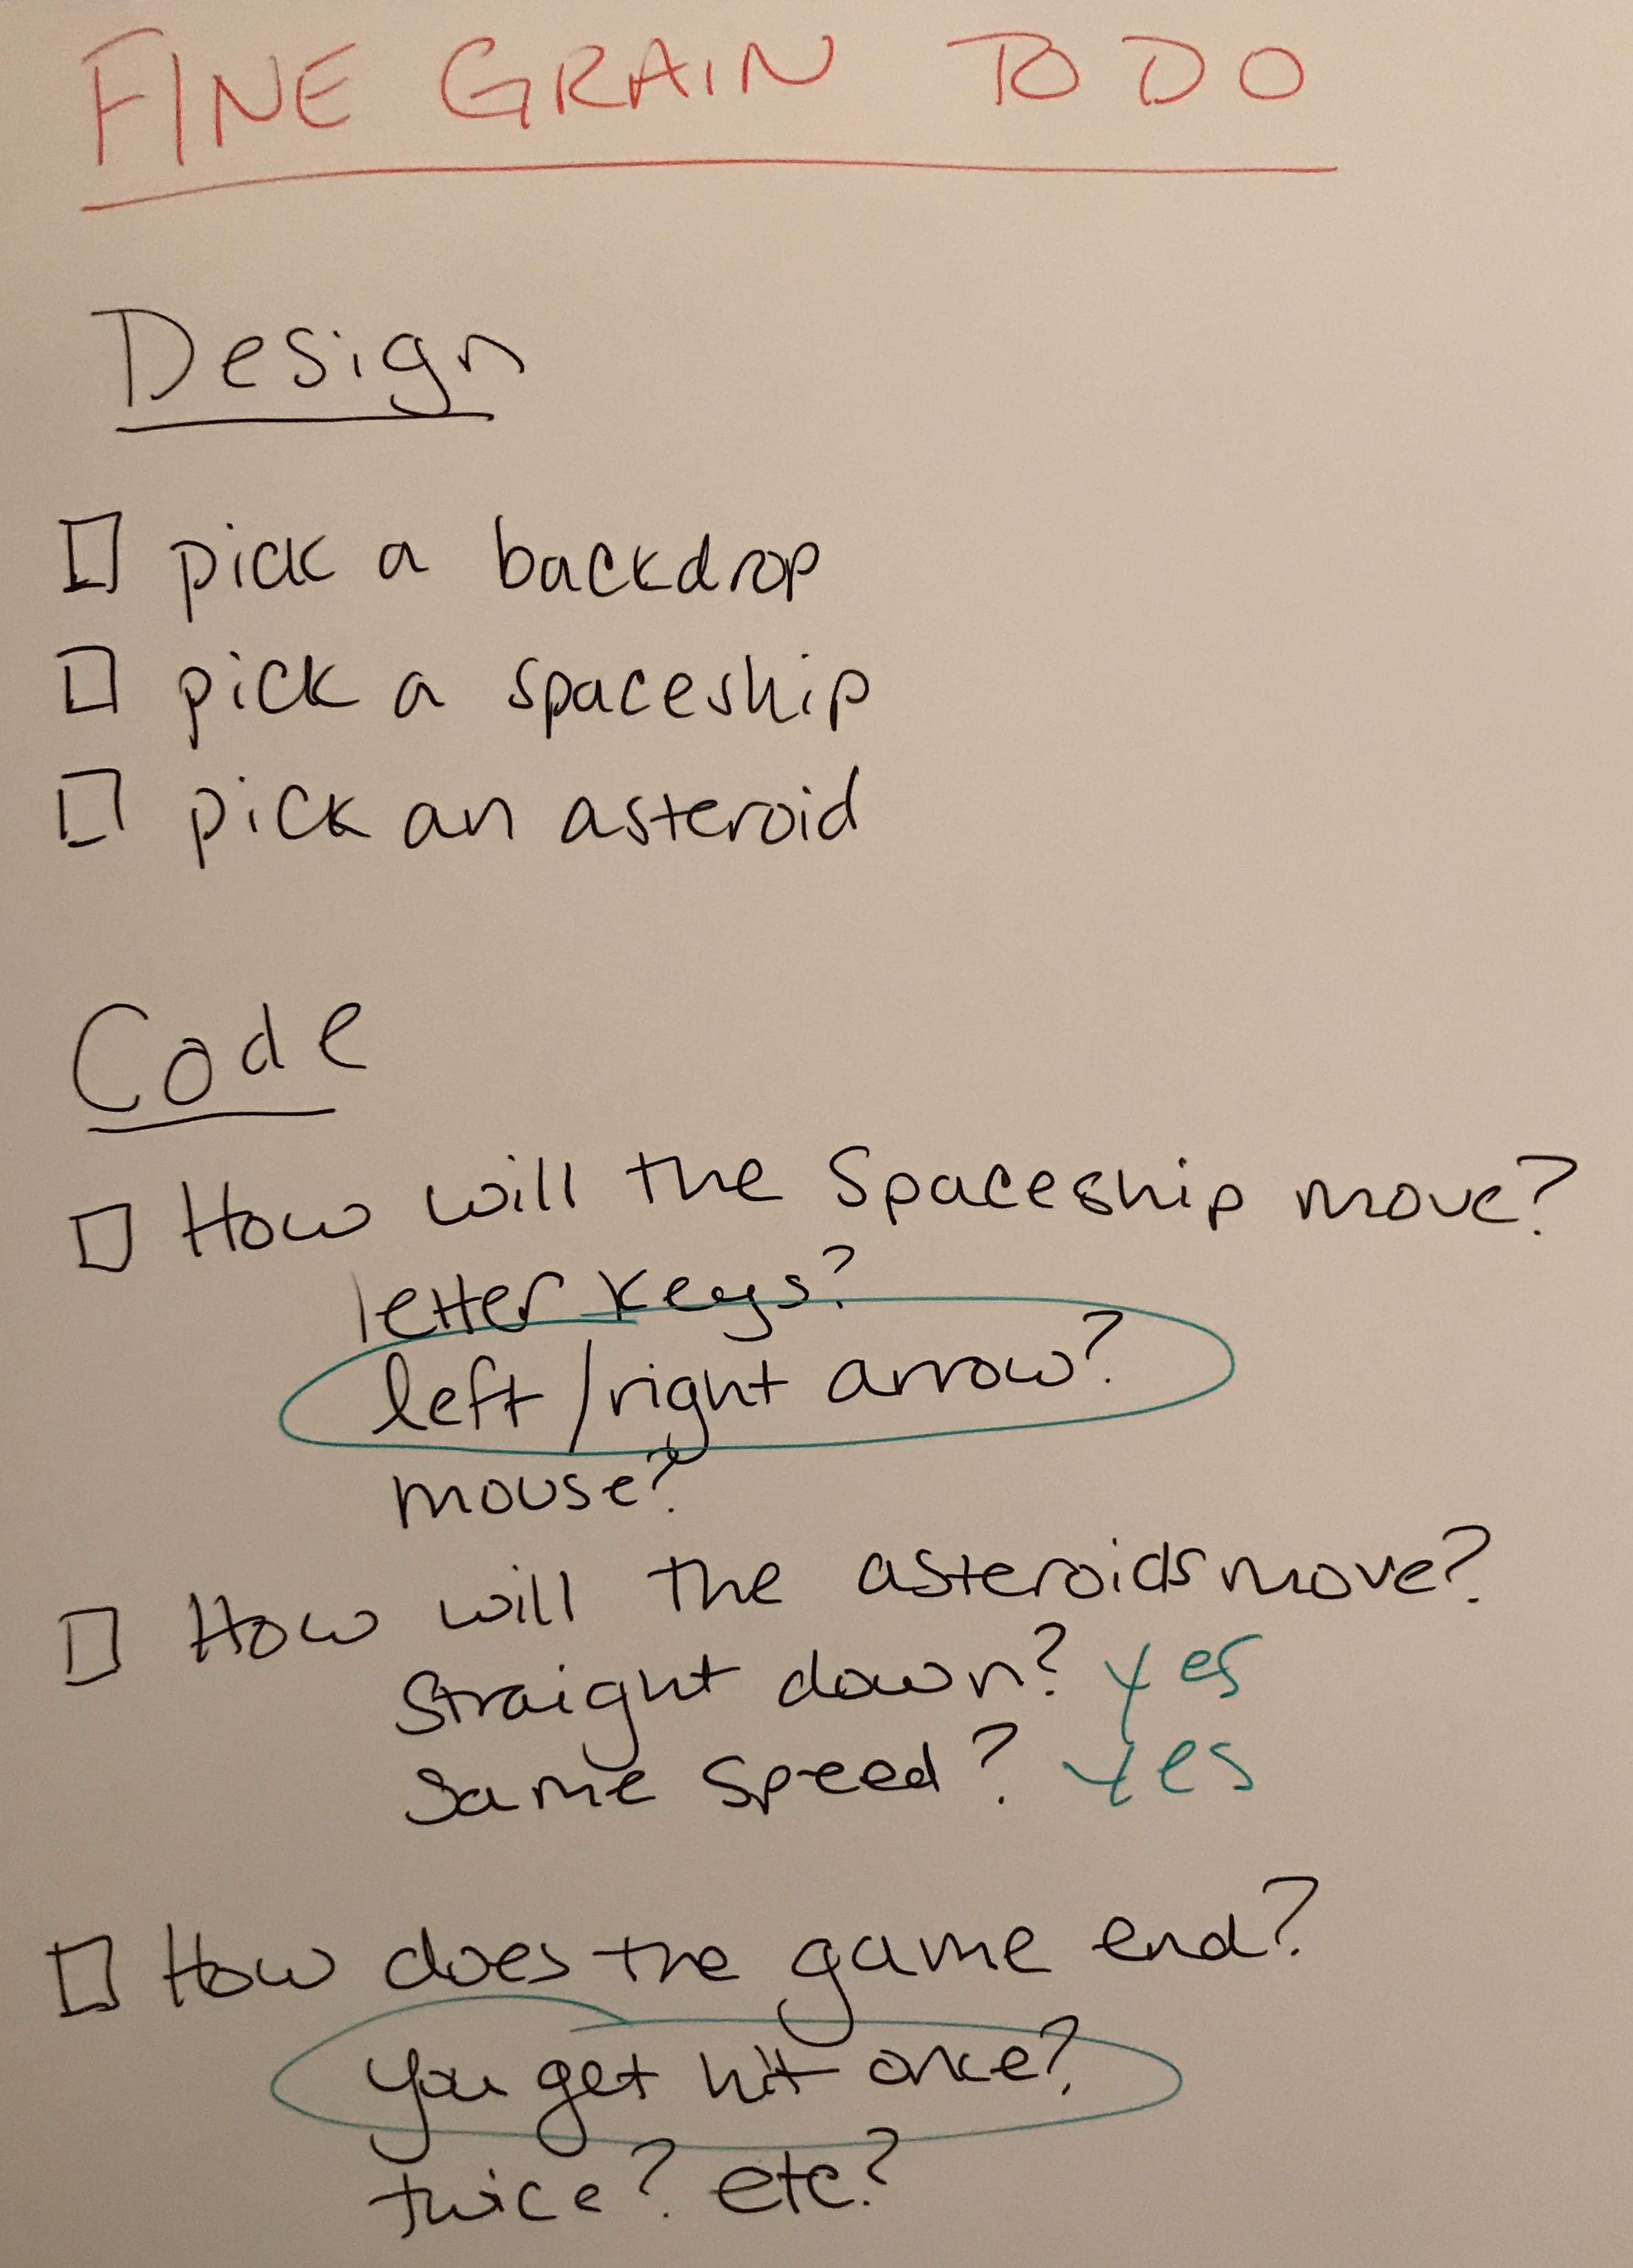 FINE GRAIN TO DO
Design
pick a backdrop
pick a spaceship
pick an asteroid
Code
How will the Spaceship move?
letter keys?
left/right arrow?
mouse?
How will the asteroids move?
Straight down? yes
Same Speed? yes
How does the game end?
you get hit once?
twice? etc.?